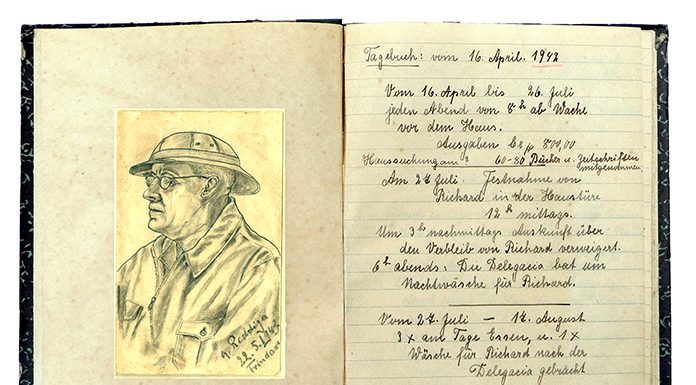 Tagebuch: vom 16. April. 1942
Vom 16. April bis 26. Juli
jeden Abend von 8h ab Wache
vor dem Haus.
Ausgaben 800,00
Haussuchung am ? 60-80 Bücher u. Zeitschriften
mitgenommen
Am 27. Juli. Festnahme von
Richard in der Haustüre
12h mittags.
Um 3h nachmittags Auskunft über
den Verbleib von Richard verweigert.
6h abends: Die Delegacia bat um
Nachtwäsche für Richard.
Vom 27. Juli — 17. August
3 x am Tage Essen, u. 1 x
Wäsche für Richard nach der
Delegacia gebracht
22.5.1943